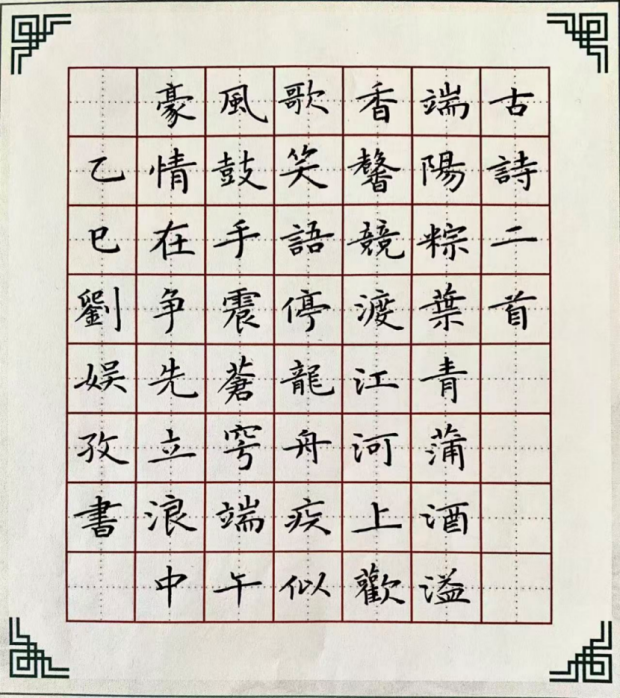 古詩二首
端陽粽葉青蒲酒溢
香馨競渡江河上歡
歌笑語停龍舟疾似
風鼓手震蒼穹端午
豪情在争先立浪中
乙巳劉娛孜書